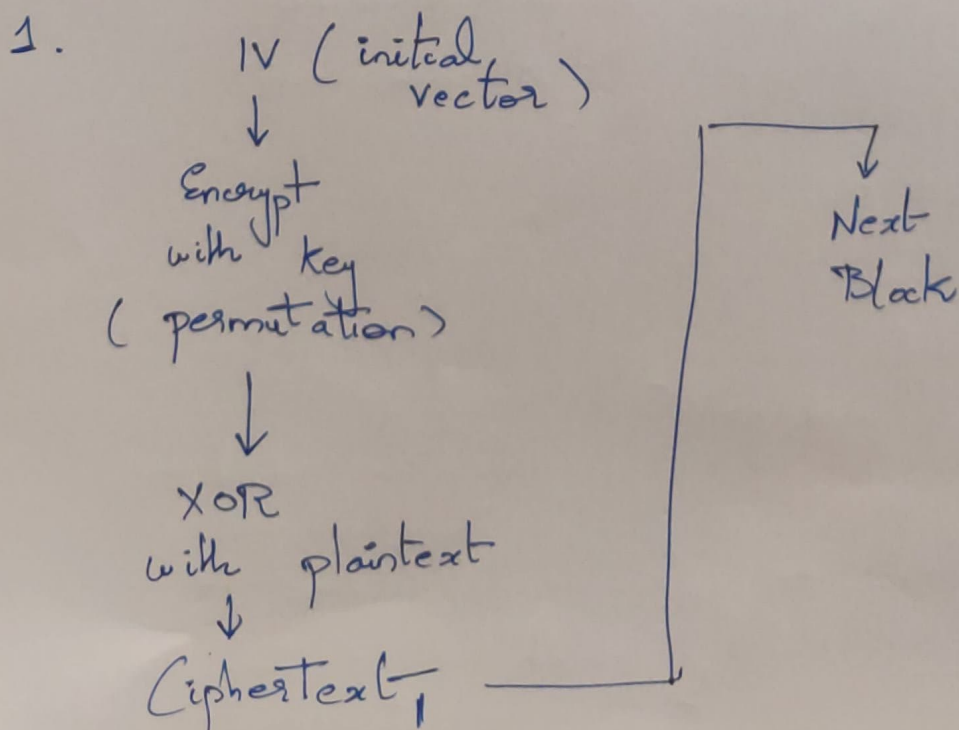 1.
IV (initial
vector)
Encrypt
with key
(permutation)
XOR
with plaintext
Ciphertext1
Next
Block